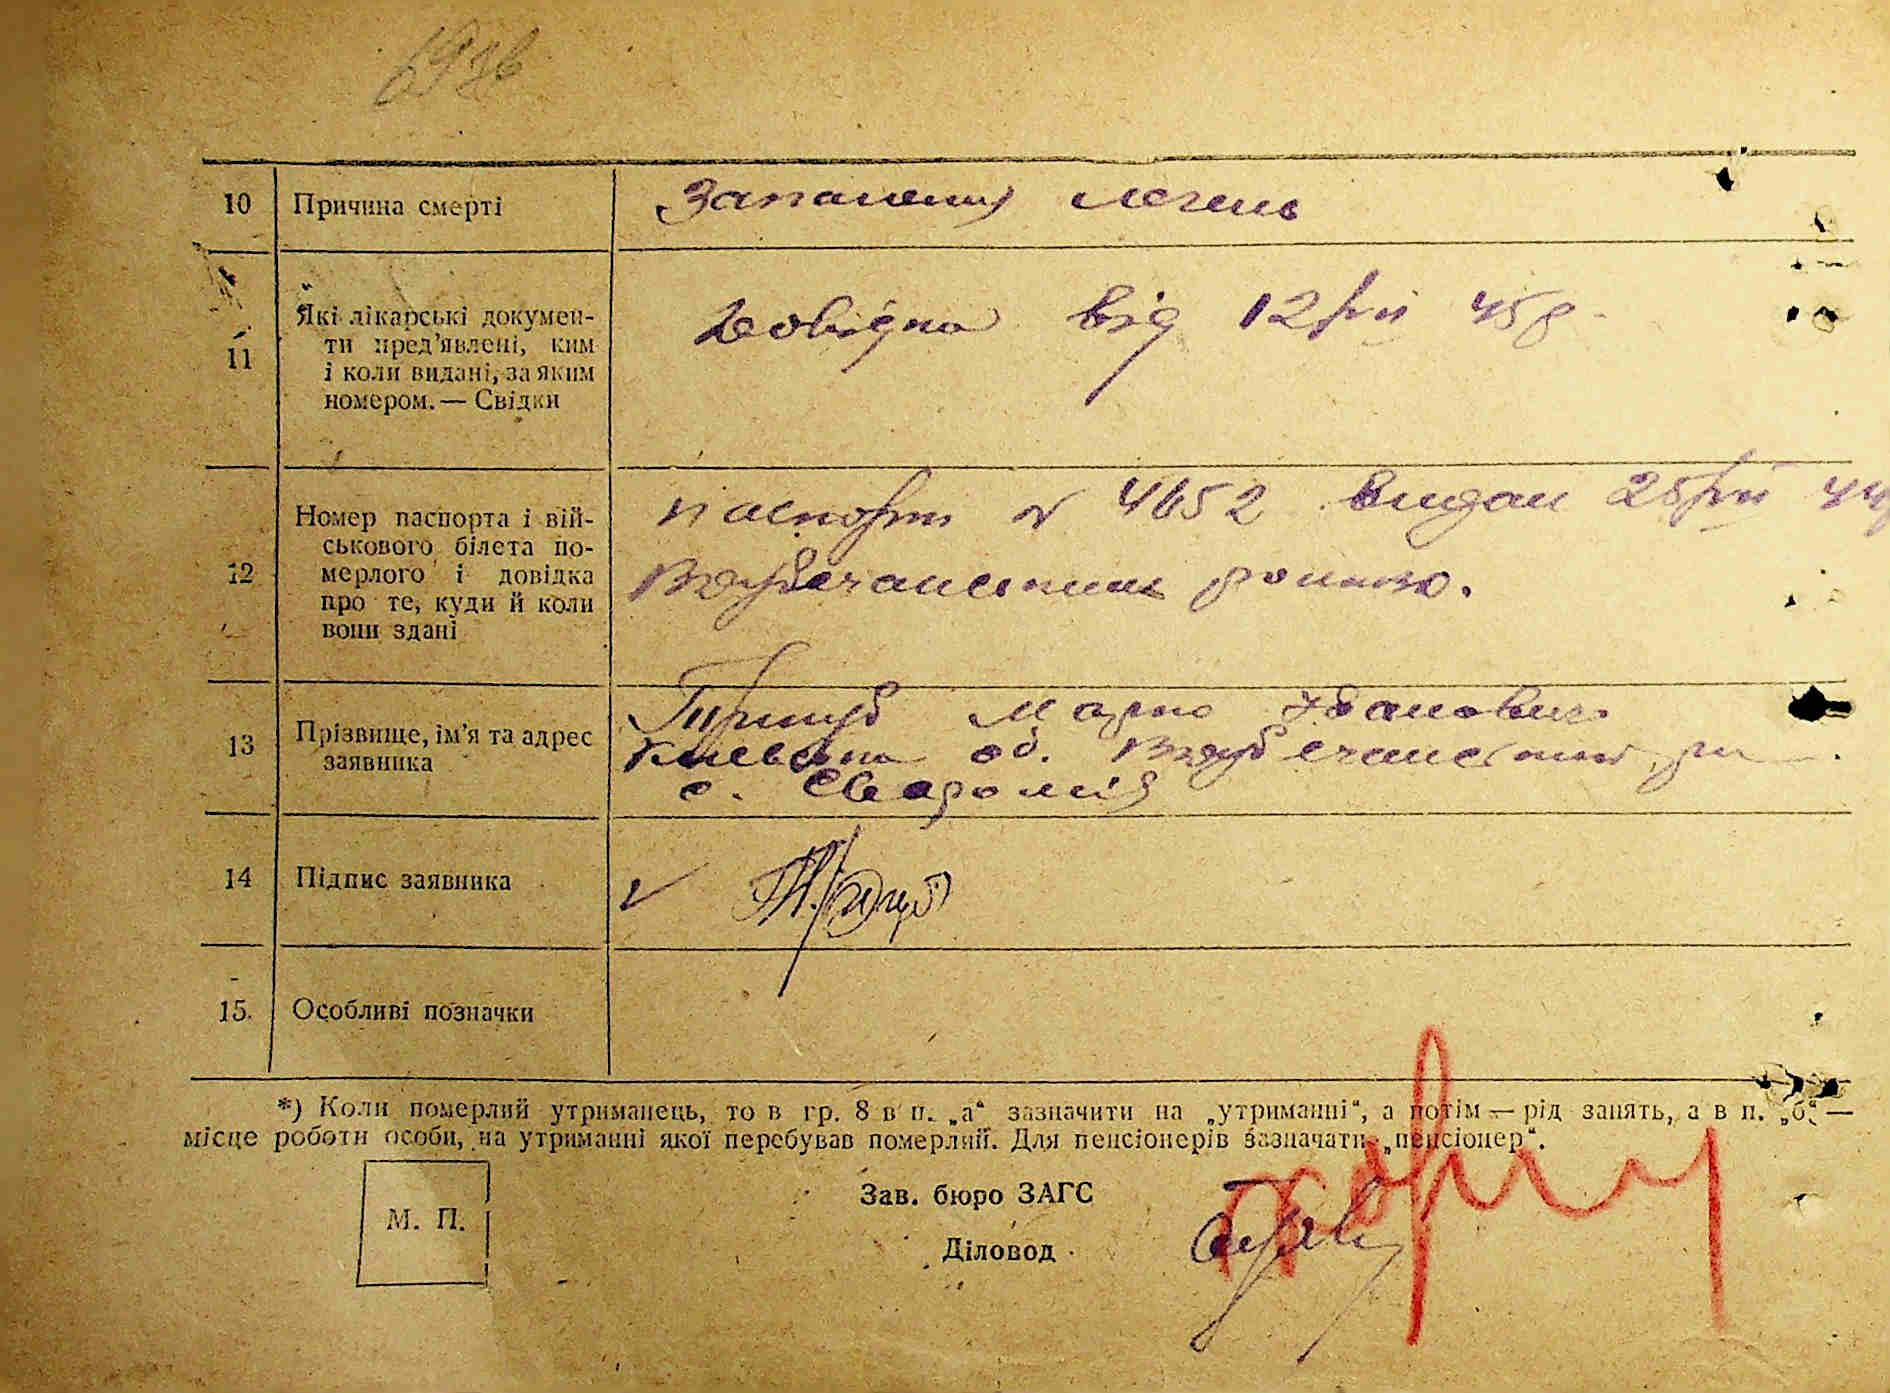 10 Причина смерті Запалення легень
11 Які лікарські документи пред'явлені, ким і коли видані, за яким номером. — Свідки
Довідка від 12/VII 45 р.
12 Номер паспорта і військового білета померлого і довідка про те, куди й коли вони здані
паспорт № 4652 видан 25/VII 44
13 Прізвище, ім'я та адрес заявника
Марко Іванович
Київська об.
с. Сваромія
14 Підпис заявника
15. Особливі позначки
*) Коли померлий утриманець, то в гр. 8 в п. „а“ зазначити на „утриманні“, а потім — рід занять, а в п. „б“ —
місце роботи особи, на утриманні якої перебував померлий. Для пенсіонерів зазначати „пенсіонер“.
М. П.
Зав. бюро ЗАГС
Діловод